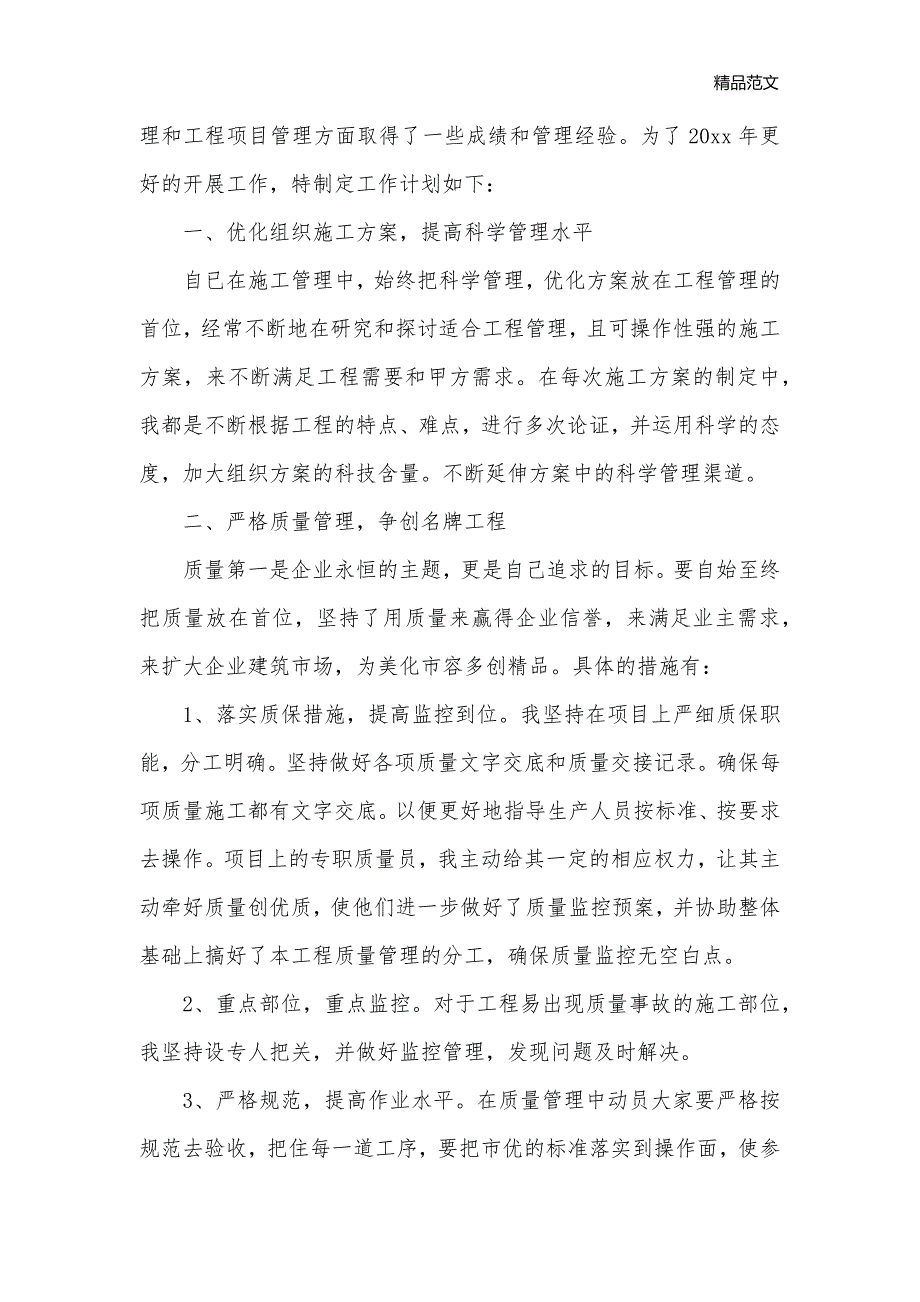 精品范文
理和工程项目管理方面取得了一些成绩和管理经验。为了20xx年更
好的开展工作，特制定工作计划如下：
一、优化组织施工方案，提高科学管理水平
自已在施工管理中，始终把科学管理，优化方案放在工程管理的
首位，经常不断地在研究和探讨适合工程管理，且可操作性强的施工
方案，来不断满足工程需要和甲方需求。在每次施工方案的制定中，
我都是不断根据工程的特点、难点，进行多次论证，并运用科学的态
度，加大组织方案的科技含量。不断延伸方案中的科学管理渠道。
二、严格质量管理，争创名牌工程
质量第一是企业永恒的主题，更是自己追求的目标。要自始至终
把质量放在首位，坚持了用质量来赢得企业信誉，来满足业主需求，
来扩大企业建筑市场，为美化市容多创精品。具体的措施有：
1、落实质保措施，提高监控到位。我坚持在项目上严细质保职
能，分工明确。坚持做好各项质量文字交底和质量交接记录。确保每
项质量施工都有文字交底。以便更好地指导生产人员按标准、按要求
去操作。项目上的专职质量员，我主动给其一定的相应权力，让其主
动牵好质量创优质，使他们进一步做好了质量监控预案，并协助整体
基础上搞好了本工程质量管理的分工，确保质量监控无空白点。
2、重点部位，重点监控。对于工程易出现质量事故的施工部位，
我坚持设专人把关，并做好监控管理，发现问题及时解决。
3、严格规范，提高作业水平。在质量管理中动员大家要严格按
规范去验收，把住每一道工序，要把市优的标准落实到操作面，使参